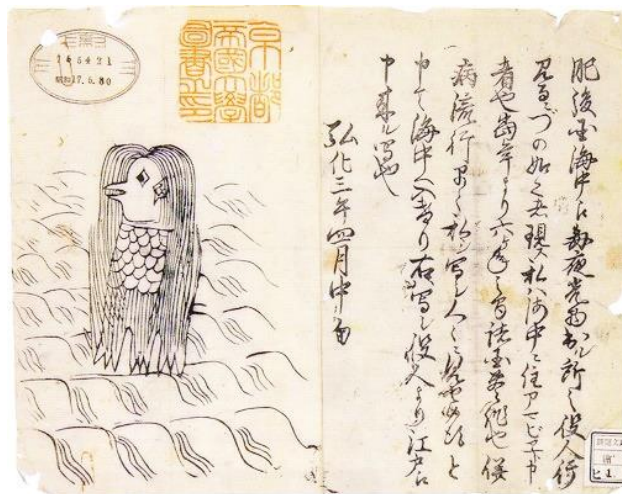 肥後国海中え毎夜光物出ル所之役人行
見るニづの如之者現ス私ハ海中ニ住アマビヱト申
者也当年より六ヶ年之間諸国豊作也併
病流行早々私シ写シ人々ニ見せ候得と
申て海中へ入けり右写シ役人より江戸え
申来ル写也
弘化三年四月中旬
京都
帝國大學
圖書之印
昭和17.5.30